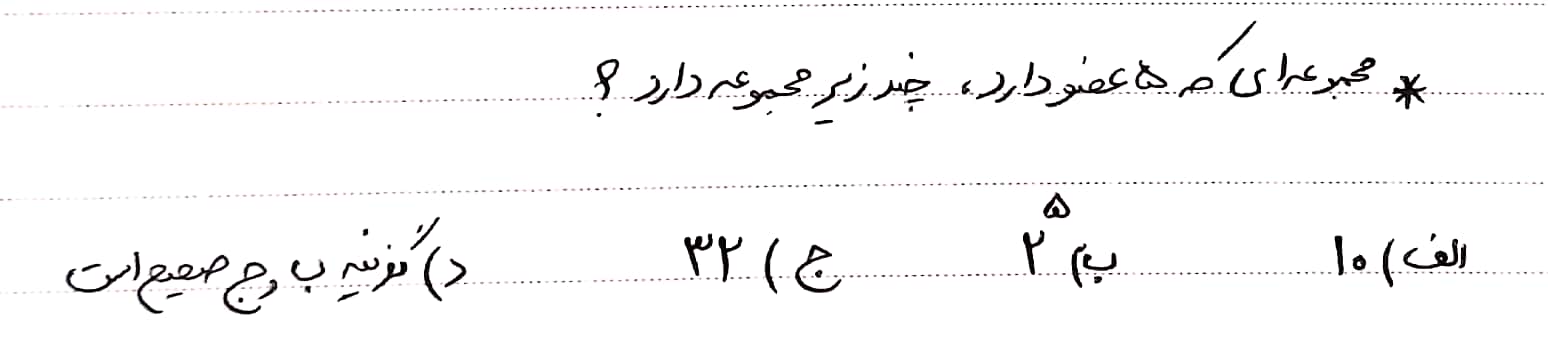 * مجموعه‌ای که ۵ عضو دارد، چند زیر مجموعه دارد ؟
الف) ۱۰ ب) ۲^۵ ج) ۳۲ د) گزینه ب و ج صحیح است